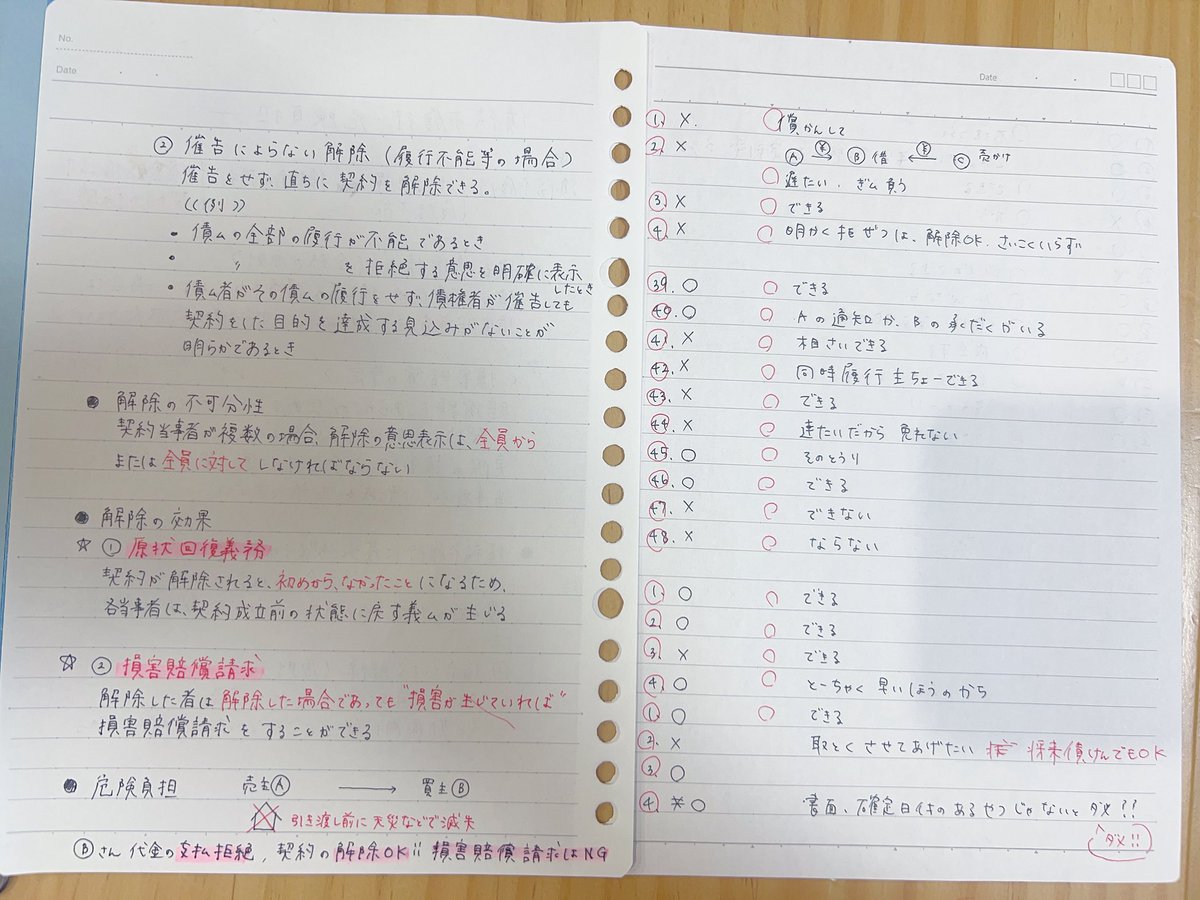 No.
Date
② 催告によらない解除 (履行不能等の場合)
催告をせず、直ちに契約を解除できる。
《例》
• 債ムの全部の履行が不能であるとき
• 〃 を拒絶する意思を明確に表示したとき
• 債ム者がその債ムの履行をせず、債権者が催告しても
契約をした目的を達成する見込みがないことが
明らかであるとき
● 解除の不可分性
契約当事者が複数の場合、解除の意思表示は、全員から
または全員に対してしなければならない
● 解除の効果
☆ ① 原状回復義務
契約が解除されると、初めから、なかったことになるため、
各当事者は、契約成立前の状態に戻す義ムが生じる
☆ ② 損害賠償請求
解除した者は解除した場合であっても"損害が生じていれば"
損害賠償請求をすることができる
● 危険負担 売主Ⓐ → 買主Ⓑ
引き渡し前に天災などで滅失
Ⓑさん 代金の支払拒絶, 契約の解除OK!! 損害賠償請求はNG
Date
①. × ○ 償かんして
②. × Ⓐ ¥→ Ⓑ借 ←¥ Ⓒ 売かけ
○ 遅たい、ぎム負う
③. × ○ できる
④. × ○ 明かく拒ぜつは、解除OK. さいこくいらず
㊴. ○ ○ できる
㊵. ○ ○ Aの通知か、Bの承だくがいる
㊶. × ○ 相さいできる
㊷. × ○ 同時履行主ちょーできる
㊸. × ○ できる
㊹. × ○ 連たいだから 免れない
㊺. ○ ○ そのとうり
㊻. ○ ○ できる
㊼. × ○ できない
㊽. × ○ ならない
①. ○ ○ できる
②. ○ ○ できる
③. × ○ できる
④. ○ ○ とーちゃく早いほうのから
①. ○ ○ できる
②. × 取とくさせてあげたい 将来債けんでもOK
③. ○
④. ○ 書面、確定日付のあるやつじゃないとダメ!!
ダメ!!